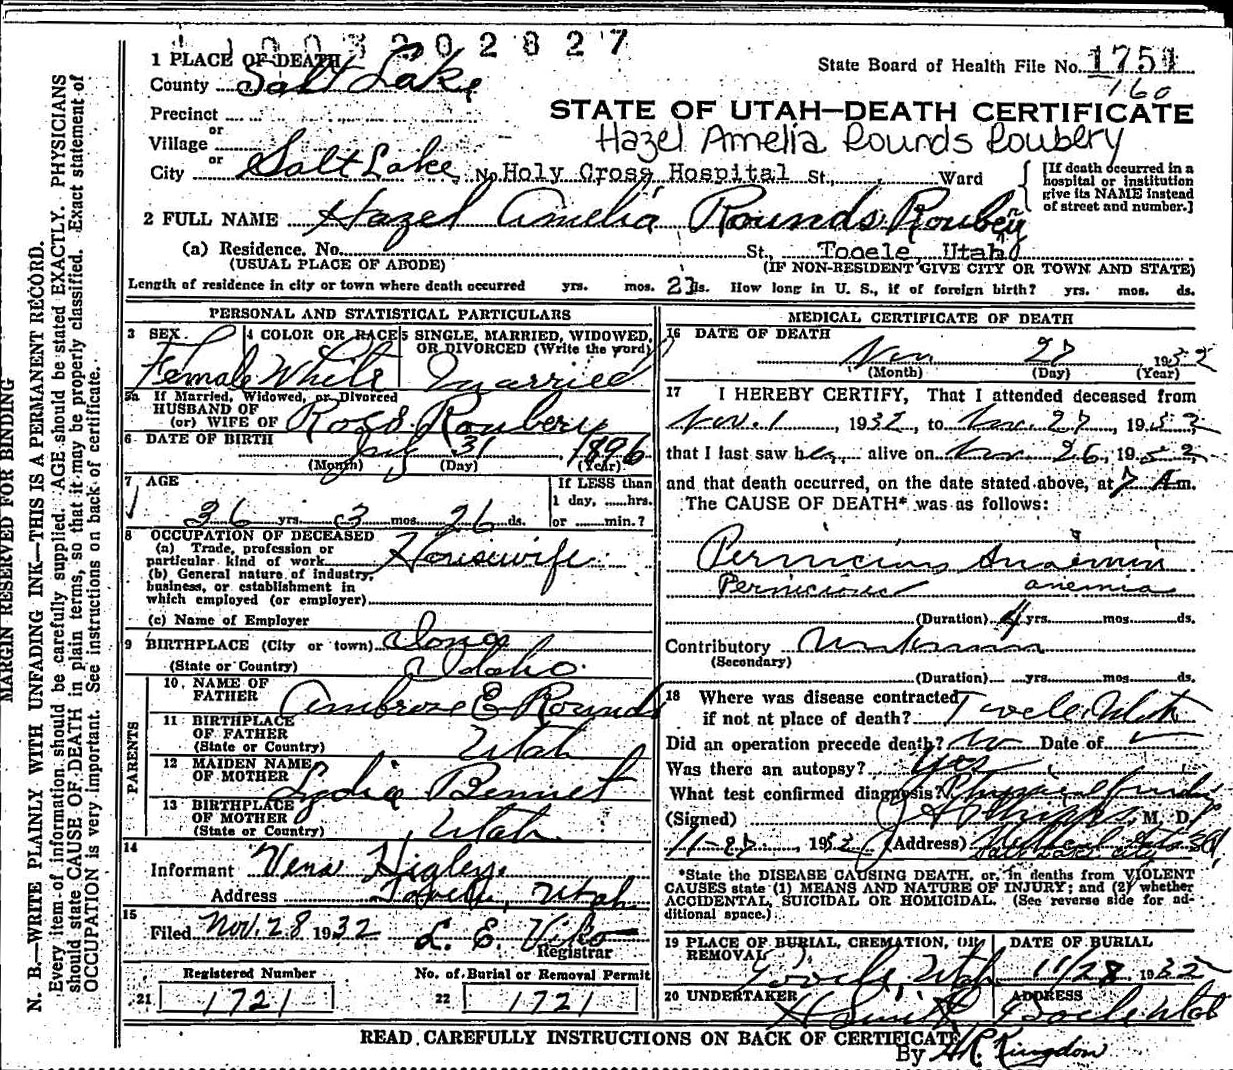 1003202827
1 PLACE OF DEATH
County Salt Lake
State Board of Health File No. 1751
160
STATE OF UTAH—DEATH CERTIFICATE
Hazel Amelia Rounds Roubery
Precinct
or
Village
or
City Salt Lake No. Holy Cross Hospital St., Ward
[If death occurred in a hospital or institution give its NAME instead of street and number.]
2 FULL NAME Hazel Amelia Rounds Roubery
(a) Residence. No. St., Tooele, Utah
(USUAL PLACE OF ABODE) (IF NON-RESIDENT GIVE CITY OR TOWN AND STATE)
Length of residence in city or town where death occurred yrs. mos. 23 ds. How long in U. S., if of foreign birth? yrs. mos. ds.
PERSONAL AND STATISTICAL PARTICULARS
3 SEX Female
4 COLOR OR RACE White
5 SINGLE, MARRIED, WIDOWED, OR DIVORCED (Write the word) Married
5a If Married, Widowed, or Divorced
HUSBAND OF
(or) WIFE OF Ross Roubery
6 DATE OF BIRTH July 31 1896
(Month) (Day) (Year)
7 AGE
36 yrs. 3 mos. 26 ds.
If LESS than
1 day, hrs.
or min.?
8 OCCUPATION OF DECEASED
(a) Trade, profession or
particular kind of work Housewife
(b) General nature of industry,
business, or establishment in
which employed (or employer)
(c) Name of Employer
9 BIRTHPLACE (City or town)
(State or Country) Idaho
PARENTS
10 NAME OF
FATHER Ambrose E Rounds
11 BIRTHPLACE
OF FATHER
(State or Country) Utah
12 MAIDEN NAME
OF MOTHER Lydia Bennet
13 BIRTHPLACE
OF MOTHER
(State or Country) Utah
14
Informant Vera Higley
Address Tooele, Utah
15
Filed Nov. 28 1932 L. E. Viko
Registrar
Registered Number
21 1721
No. of Burial or Removal Permit
22 1721
MEDICAL CERTIFICATE OF DEATH
16 DATE OF DEATH
Nov 27 1932
(Month) (Day) (Year)
17 I HEREBY CERTIFY, That I attended deceased from
Nov. 1, 1932, to Nov. 27, 1932
that I last saw her alive on Nov. 26, 1932
and that death occurred, on the date stated above, at 7 A m.
The CAUSE OF DEATH* was as follows:
Pernicious Anaemia
Pernicious anemia
(Duration) 4 yrs. mos. ds.
Contributory Unknown
(Secondary)
(Duration) yrs. mos. ds.
18 Where was disease contracted
if not at place of death? Tooele, Utah
Did an operation precede death? no Date of
Was there an autopsy? Yes
What test confirmed diagnosis? Physical
(Signed) M. D.
11-27, 1932 (Address) Medical Arts Bldg
Salt Lake City
*State the DISEASE CAUSING DEATH, or, in deaths from VIOLENT
CAUSES state (1) MEANS AND NATURE OF INJURY; and (2) whether
ACCIDENTAL, SUICIDAL OR HOMICIDAL. (See reverse side for ad-
ditional space.)
19 PLACE OF BURIAL, CREMATION, OR
REMOVAL Tooele, Utah
DATE OF BURIAL
11/28 1932
20 UNDERTAKER
H Smith
ADDRESS
Tooele Utah
READ CAREFULLY INSTRUCTIONS ON BACK OF CERTIFICATE
By H.R. Kingdon
MARGIN RESERVED FOR BINDING
N. B.—WRITE PLAINLY WITH UNFADING INK—THIS IS A PERMANENT RECORD.
Every item of information should be carefully supplied. AGE should be stated EXACTLY. PHYSICIANS
should state CAUSE OF DEATH in plain terms, so that it may be properly classified. Exact statement of
OCCUPATION is very important. See instructions on back of certificate.